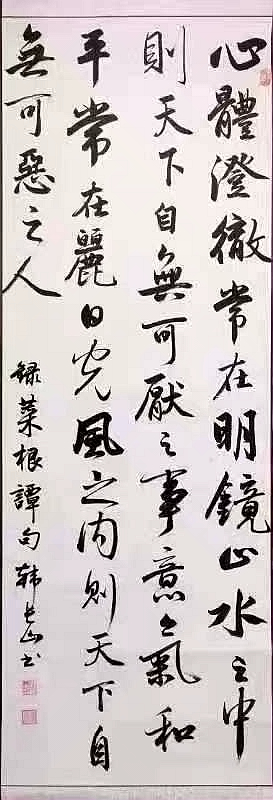 心體澄徹常在明鏡止水之中
則天下自無可厭之事意氣和
平常在麗日光風之內則天下自
無可惡之人
錄菜根譚句韩長山书